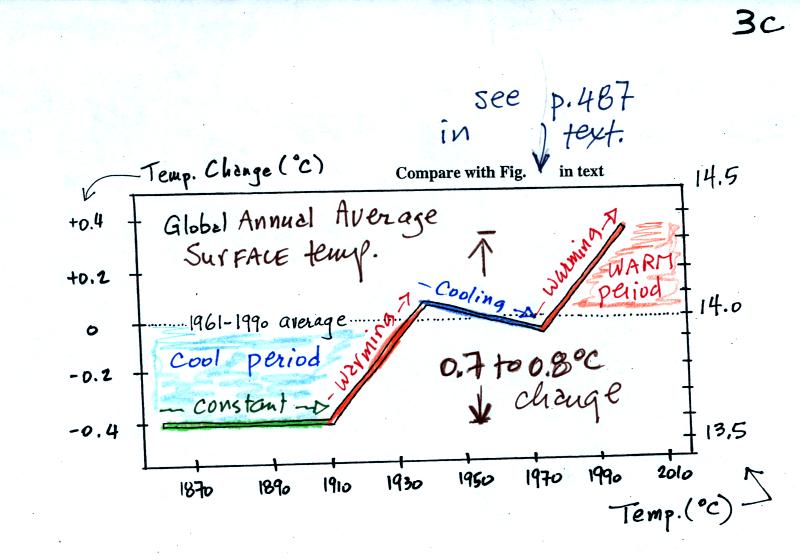 3c
see p.487
in text.
Temp. Change (°C)
Compare with Fig. in text
14.5
+0.4
Global Annual Average
SURFACE temp.
warming
WARM
period
+0.2
Cooling
warming
14.0
0
1961-1990 average
Cool period
-0.2
0.7 to 0.8°C
change
constant
-0.4
13.5
1870 1890 1910 1930 1950 1970 1990 2010
Temp. (°C)